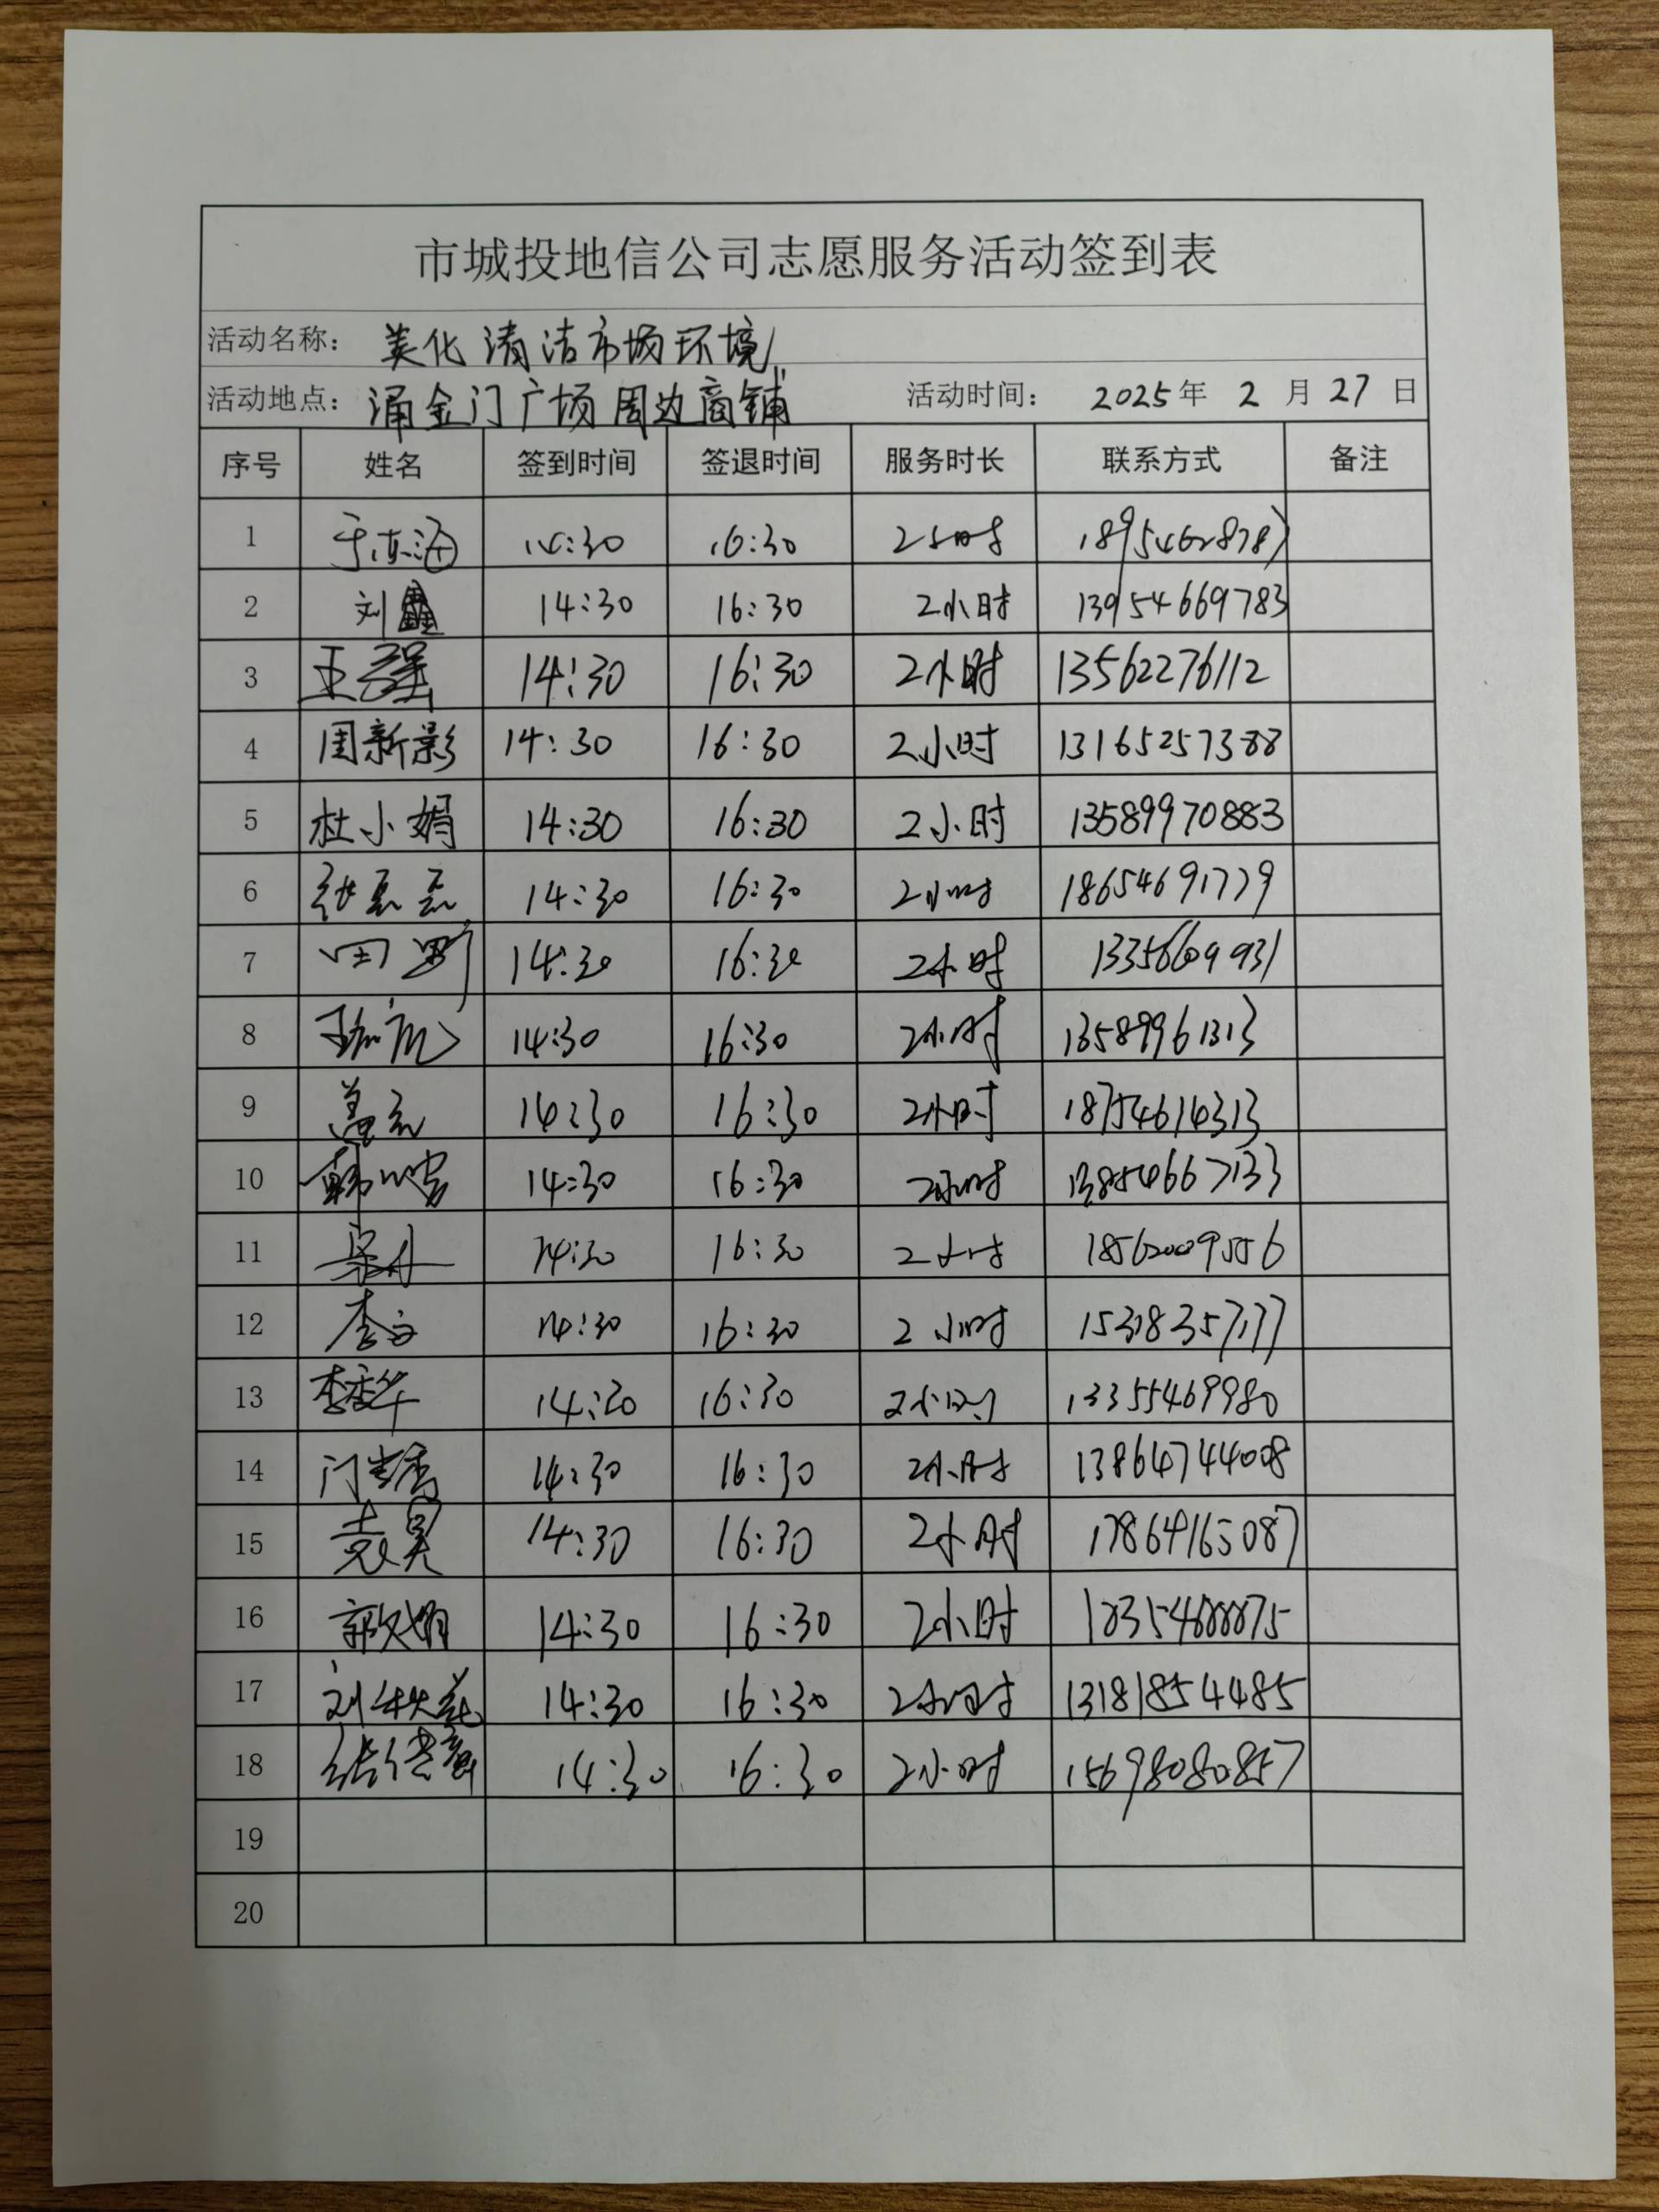 市城投地信公司志愿服务活动签到表
活动名称： 美化清洁市场环境
活动地点： 涌金门广场周边商铺 活动时间： 2025年 2 月 27 日
序号 姓名 签到时间 签退时间 服务时长 联系方式 备注
1 于东海 14:30 16:30 2小时 18954628787
2 刘鑫 14:30 16:30 2小时 13954669783
3 王强 14:30 16:30 2小时 13562276112
4 周新影 14:30 16:30 2小时 13165257388
5 杜小娟 14:30 16:30 2小时 13589970883
6 张磊磊 14:30 16:30 2小时 18654691779
7 田野 14:30 16:30 2小时 13356609931
8 14:30 16:30 2小时 13589961313
9 盖云 14:30 16:30 2小时 18754614313
10 14:30 16:30 2小时 13854667133
11 14:30 16:30 2小时 18562009556
12 14:30 16:30 2小时 15318357177
13 14:30 16:30 2小时 13355469980
14 14:30 16:30 2小时 13864744008
15 袁昊 14:30 16:30 2小时 17864165087
16 14:30 16:30 2小时
17 14:30 16:30 2小时 13181854485
18 14:30 16:30 2小时 15698080857
19
20